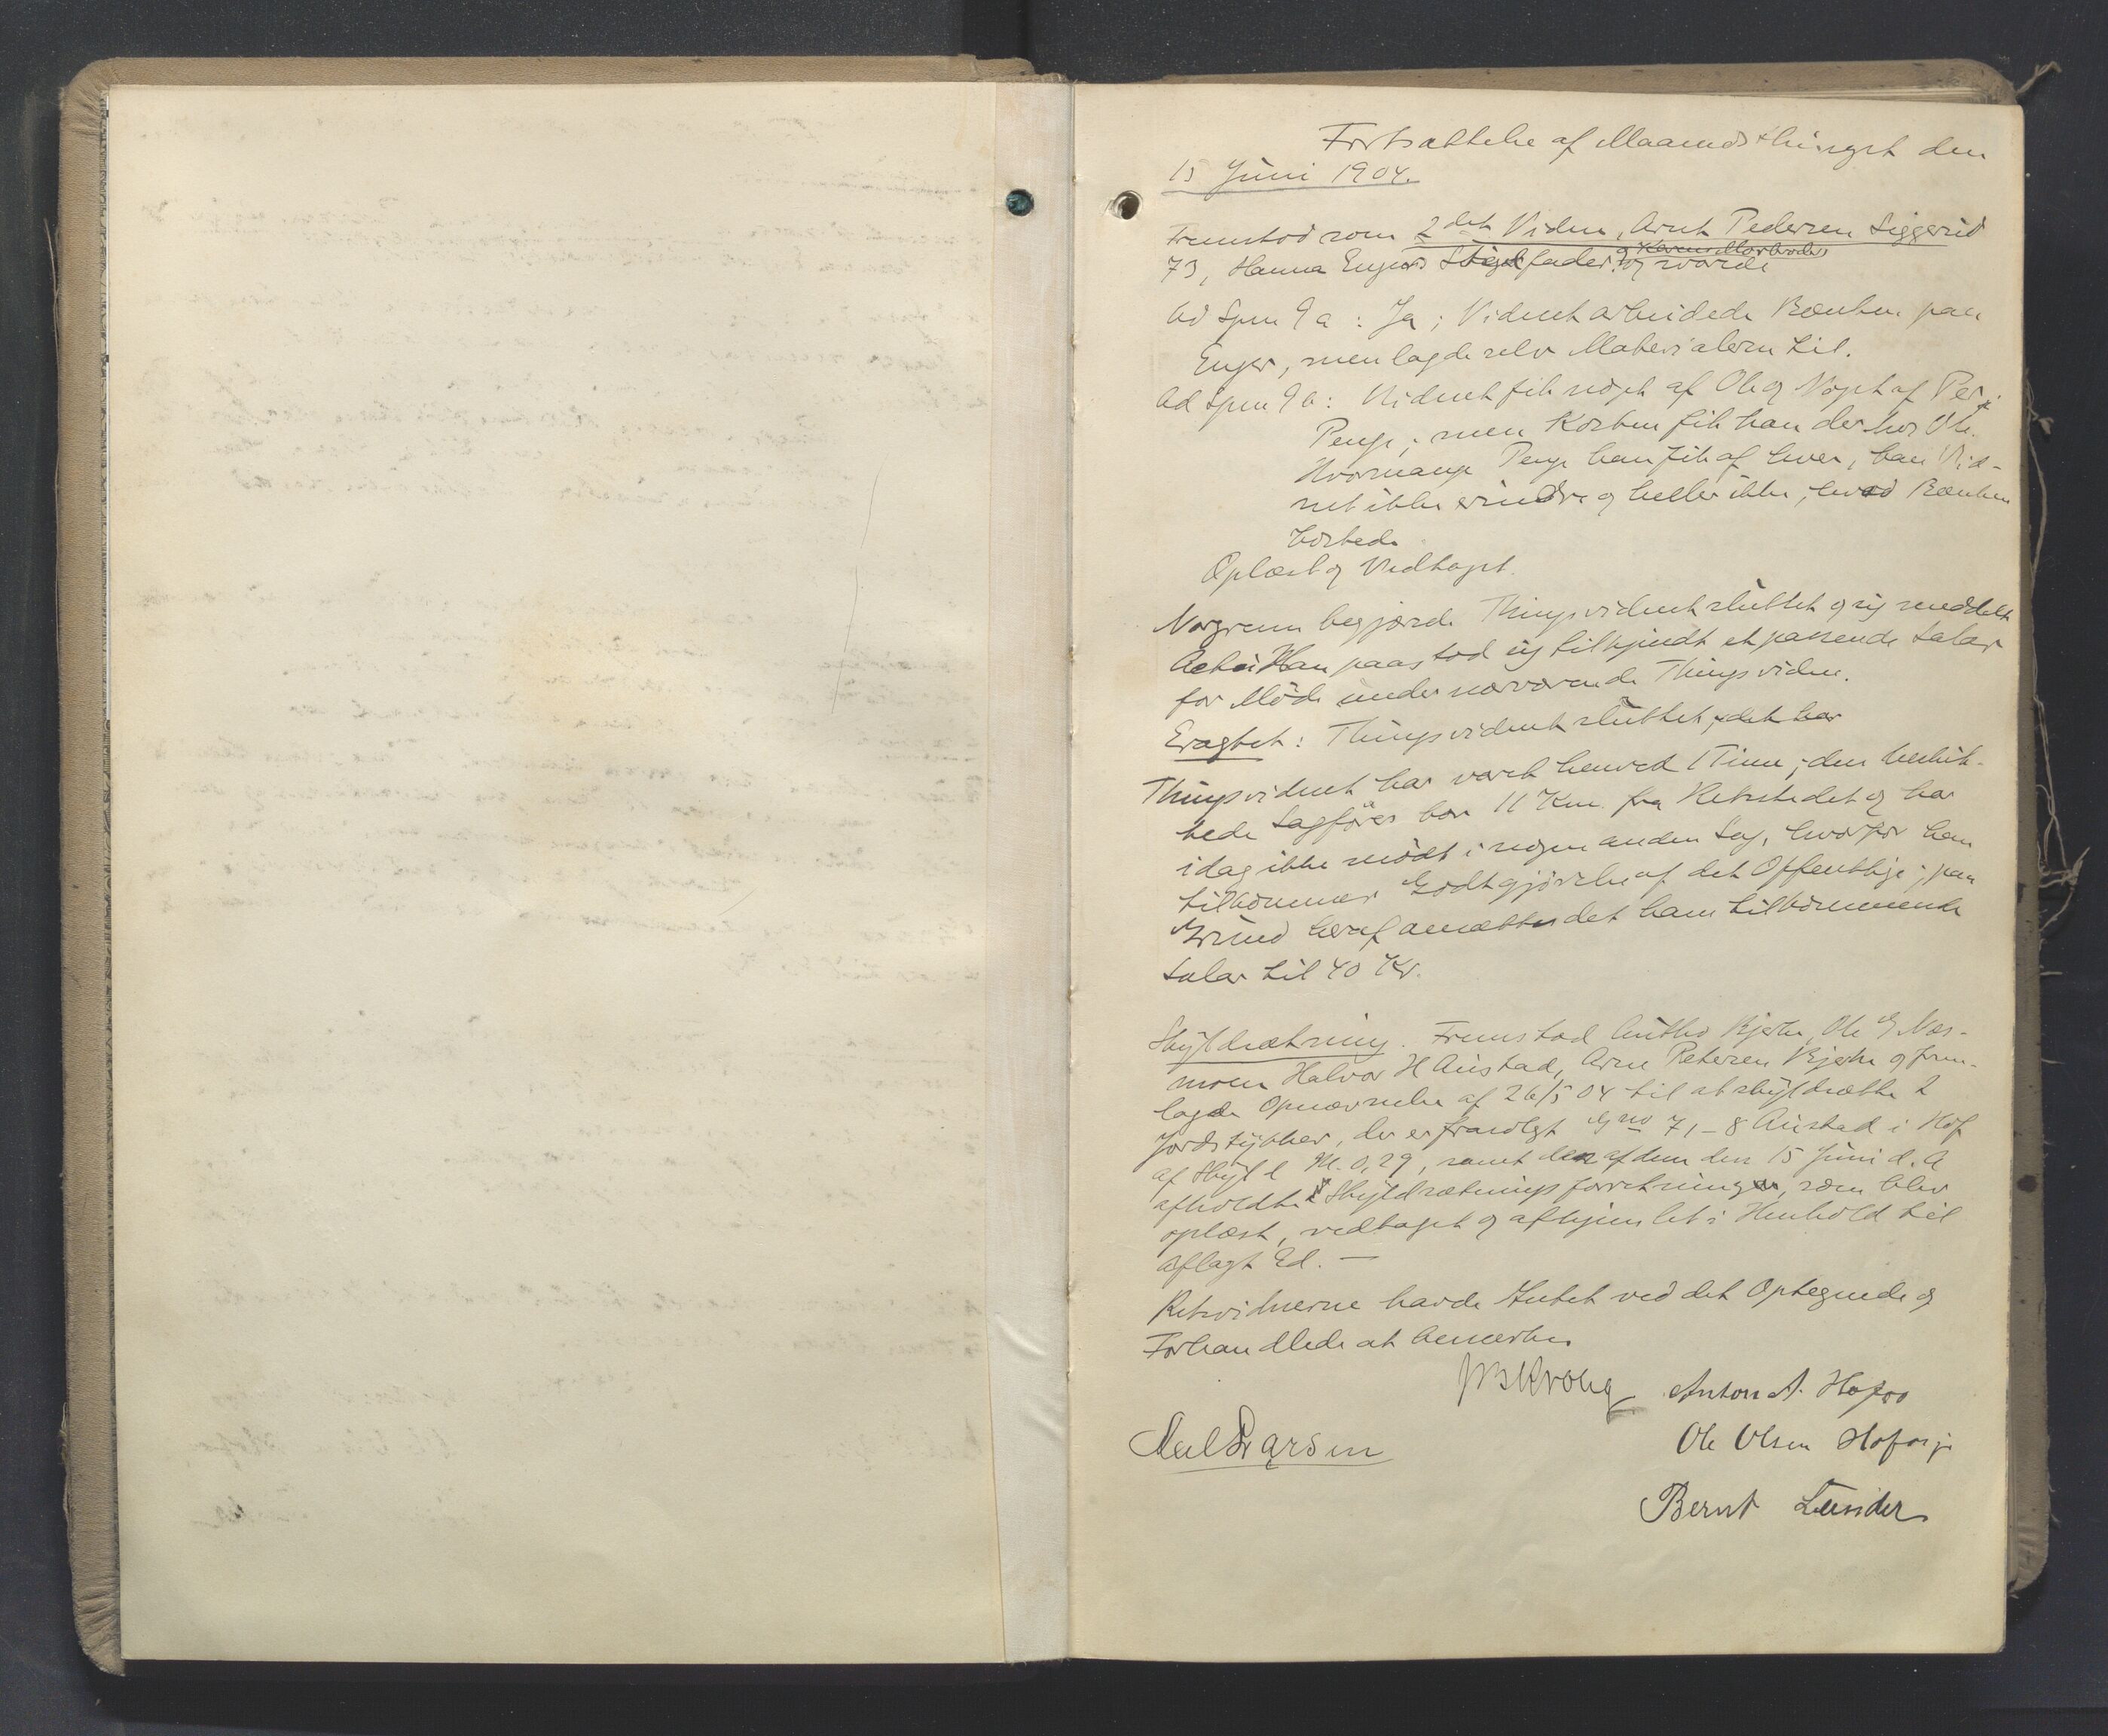 Fortsættelse af Maanedsthinget den
15 Juni 1904.
Fremstod som 2det Vidne, Arnt Pedersen Siggerud
73, Hanna Engers Stigfader og Karens Morbroder og svarede
Ad Spm 9 a : Ja ; Vidnet arbeidede Bænken paa
Enger, men lagde selv Materialerne til.
Ad Spm 9 b : Vidnet fik noget af Ole og Noget af Per i
Penge, men Kosten fik han der hos Ole.
Hvormange Penge han fik af hver, kan Vid-
net ikke erindre og heller ikke, hvad Bænken
kostede.
Oplæst og Vedtaget.
begjærede Thingsvidnet sluttet og sig meddelt
Acten Han paastod sig tilkjendt et passende Salær
for Møde under nærværende Thingsvidne.
Eragtet : Thingsvidnet sluttet, det har
Thingsvidnet har varet henved 1 Time ; den beskik-
kede Sagfører bor 11 Km. fra Retsstedet og har
idag ikke mødt i nogen anden Sag, hvorfor ham
tilkommer Godtgjørelse af det Offentlige ; paa
Grund heraf ansættes det ham tilkommende
Salær til 40 Kr.
Skyldsætning. Fremstod Bjerke, Ole G Næs-
moen Halvor H Austad, Arne Petersen Bjerke og frem-
lagde Opnævnelse af 26/5 04 til at skyldsætte 2
Jordstykker, der er fraso​lgt Gno 71 - 8 Austad i Hof
af Skyld M. 0,29, samt den af dem den 15 Juni d. A
afholdte Skyldsætningsforretning, som blev
oplæst, vedtaget og afhjemlet i Henhold til
aflagt Ed. —
Retsvidnerne havde Intet ved det Optegnede og
Forhandlede at bemærke.
Krohg Anton A. Hofoo
Larsen Ole Olsen
Bernt Lunder